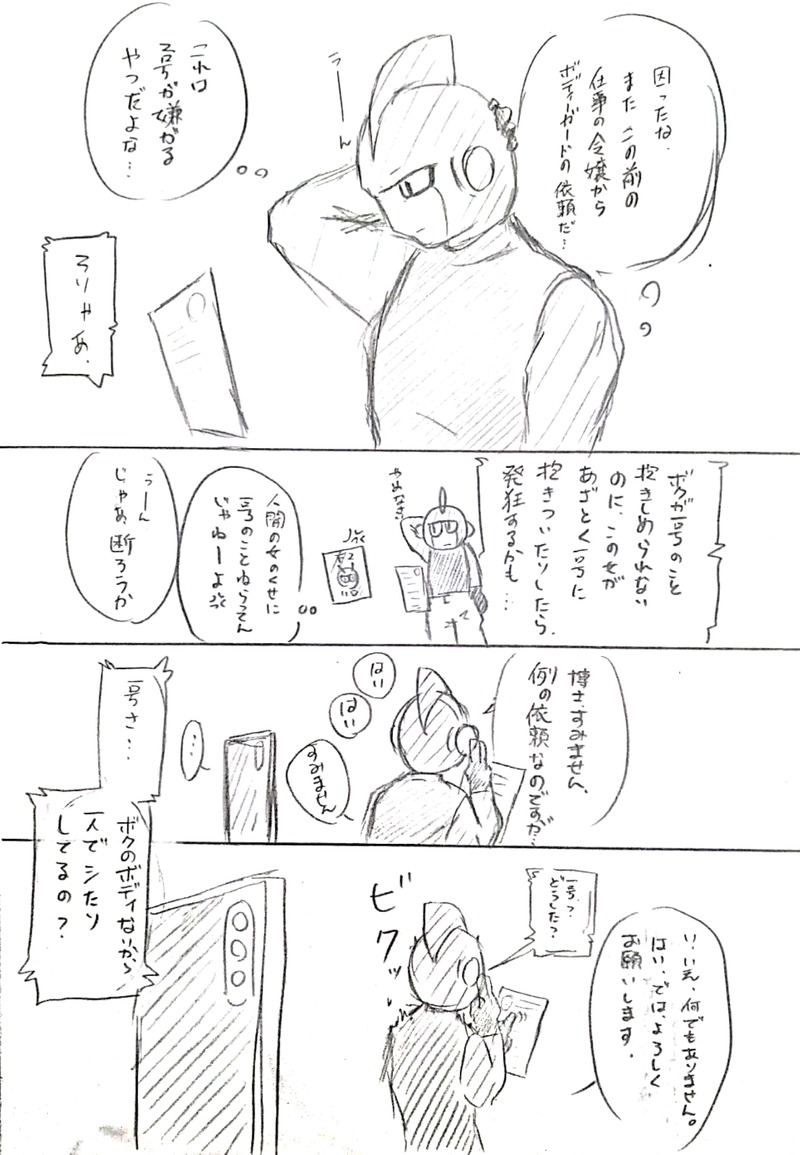 困ったね、
また この前の
仕事の令嬢から
ボディーガードの依頼だ…
うーん
これは
2号が嫌がる
やつだよな…
そりゃあ、
ボクが1号のこと
抱きしめられない
のに、この女が
あざとく1号に
抱きついたりしたら、
発狂するかも…
やめなさい
人間の女のくせに
1号のことねらってん
じゃねーよ
うーん
じゃあ断ろうか
博士、すみません、
例の依頼なのですが…
はい
はい
すみません
…
1号さ…
ボクのボディないから
一人でシたり
してるの？
1号？
どうした？
ビクッ
い、いえ、何でもありません。
はい、では、よろしく
お願いします。